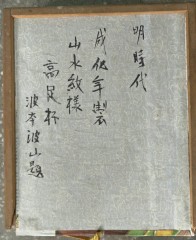 明時代
成化年製
山水紋樣
高足杯
波多波山題